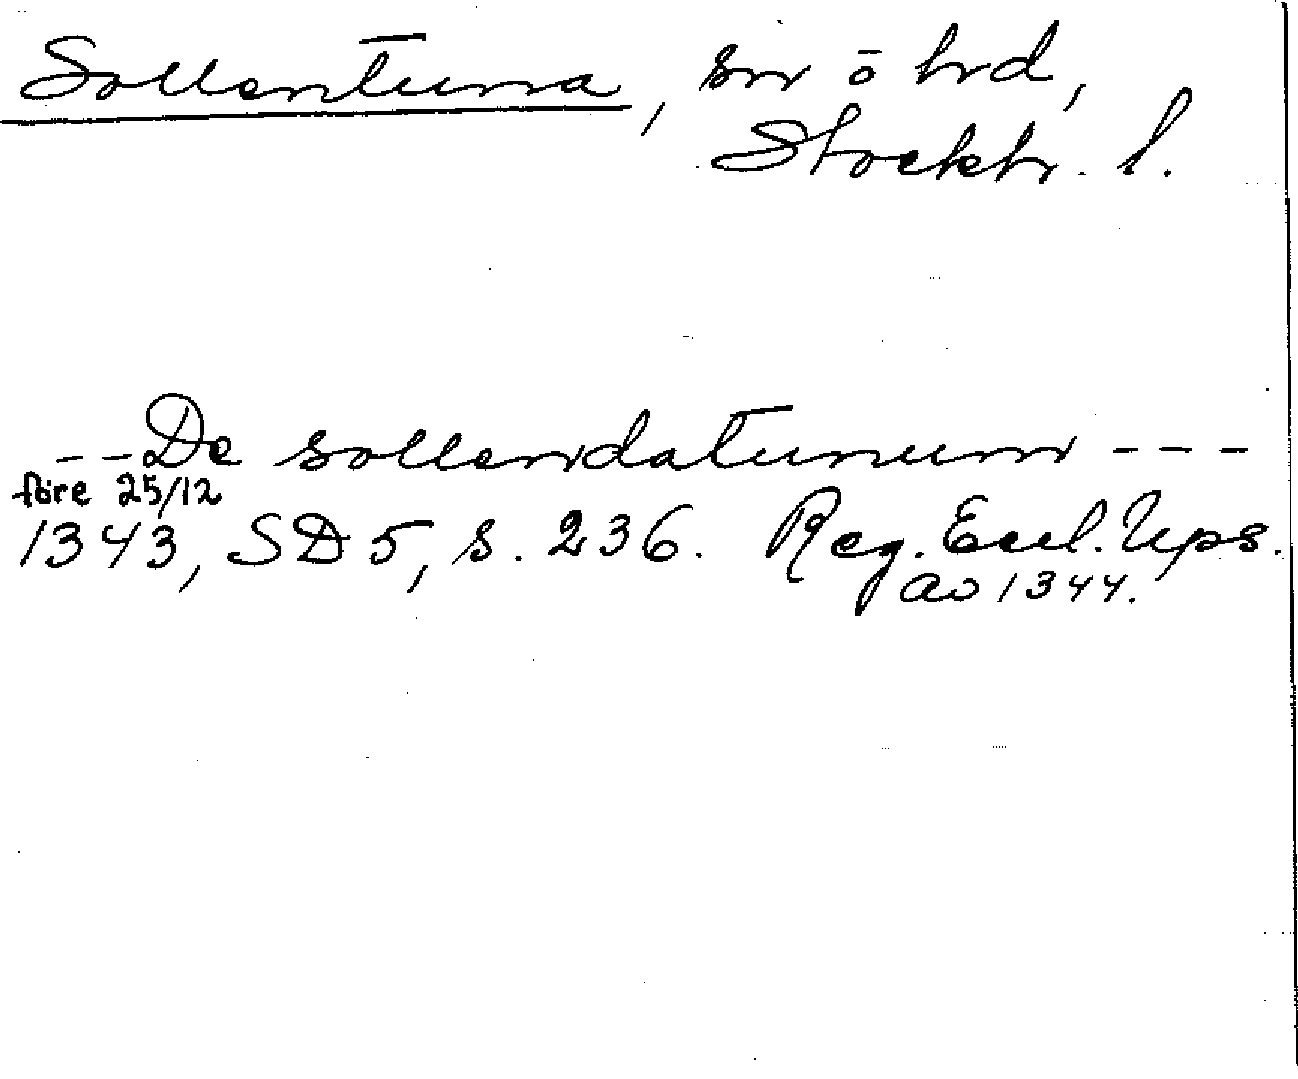 Sollentuna, sn ō hd,
Stockh. l.
--De sollendatunum ---
före 25/12
1343, SD 5, s. 236. Reg. Eccl. Ups.
av 1344.